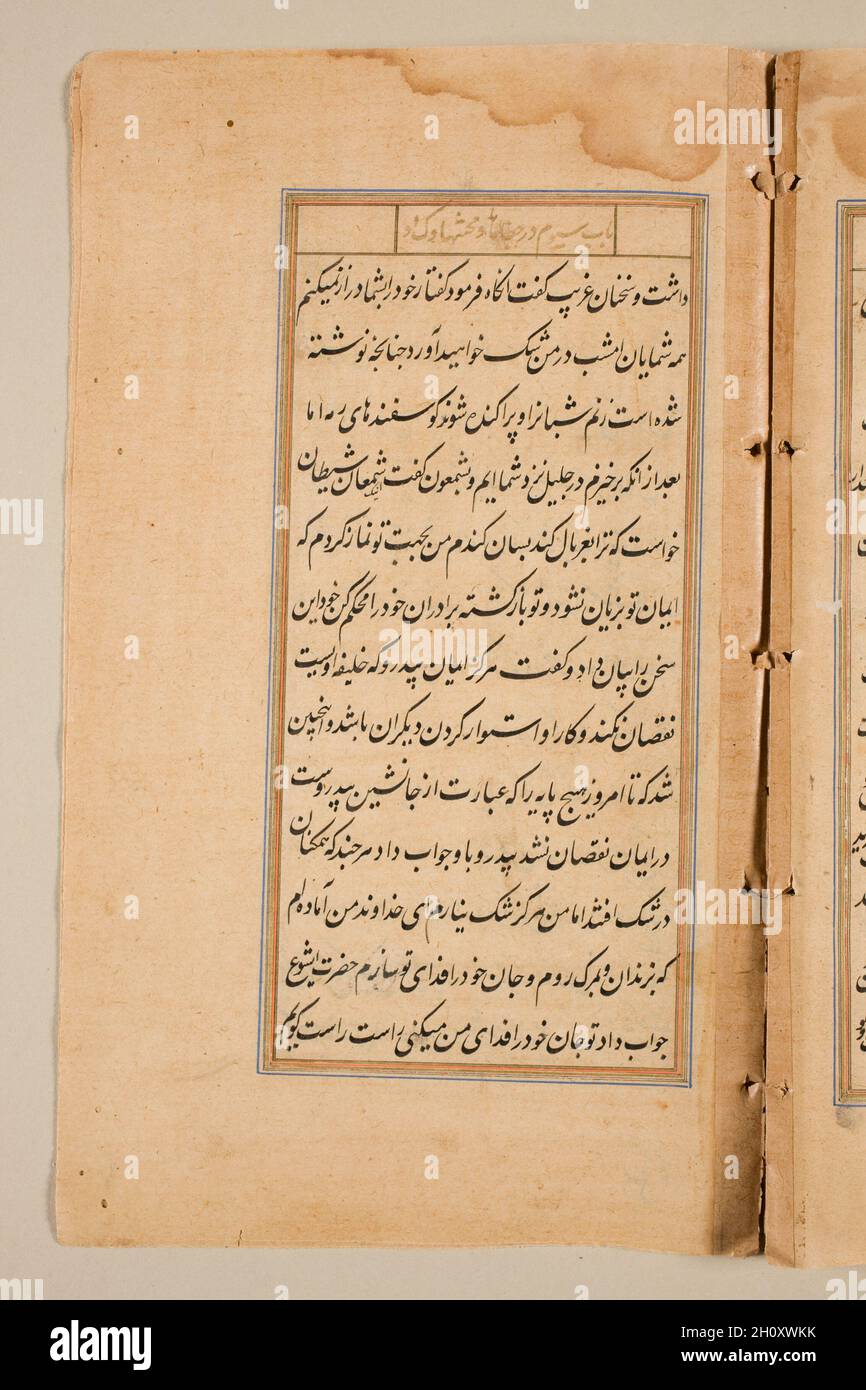 باب سیوم در جفاها و محنتها و
داشت و سخنان غریب کفت انکاه فرمود کفتار خود را بشما دراز نمیکنم
همه شمایان امشب در من شک خواهید آورد چنانچه نوشته
شده است زنم شبانرا و پراکنده شوند کوسفندهای رمه اما
بعد از انکه برخیزم در جلیل نزد شما ایم و بشمعون کفت شمعان شیطان
خواست که ترا بغربال کند بسان کندم من بجهت تو نماز کردم که
ایمان تو بزیان نشود و تو بازکشته برادران خود را محکم کن خود این
سخن را بیان داد و کفت هرکز ایمان پیدرو که خلیفه اویست
نقصان نکند و کار او استوار کردن دیکران باشد و اینچنین
شد که تا امروز هیچ پایه را که عبارت از جانشین پیدروست
در ایمان نقصان نشد پیدرو باو جواب داد هرچند که همکنان
در شک افتند اما من هرکز شک نیارم ای خداوند من آماده ام
که بزندان و بمرک روم و جان خود را فدای تو سازم حضرت ایشوع
جواب داد تو جان خود را فدای من میکنی راست راست کویم
alamy
Image ID: 2H0XWKK
www.alamy.com